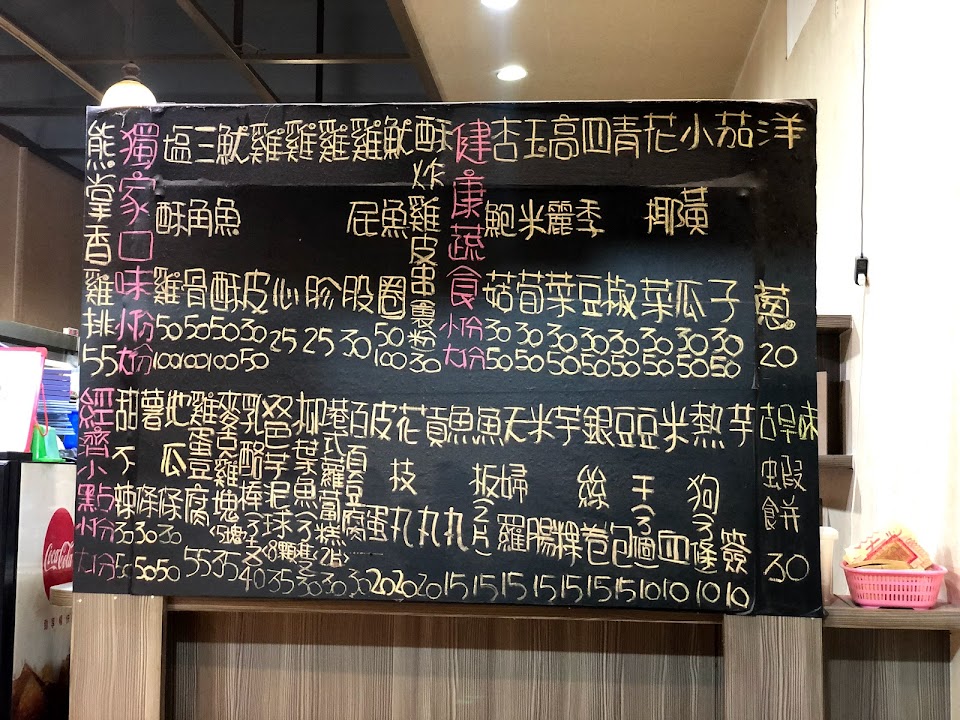 熊掌香雞排 55
獨家口味 小份 大份
塩酥雞 50 100
三角骨 50 100
魷魚酥 50 100
雞皮 30 50
雞心 25
雞胗 25
雞屁股 30
魷魚圈 50 100
酥炸雞皮串 裹粉 30
健康蔬食 小份 大份
杏鮑菇 30 50
玉米筍 30 50
高麗菜 30 50
四季豆 30 50
青椒 30 50
花椰菜 30 50
小黃瓜 30 50
茄子 30 50
洋蔥 20
經濟小點 小份 大份
甜不辣 30 50
薯條 30 50
地瓜條 30
雞蛋豆腐 55
麥克雞塊 35
乳酪棒 40
芋泥球 8顆 35
柳葉魚 30
港式蘿蔔糕 2片 30
百頁豆腐 30
皮蛋 20
花枝丸 20
貢丸 20
魚丸 15
魚板 2片 15
天婦羅 15
米腸 15
芋粿 15
銀絲卷 15
豆包 15
豆干 10
米血 10
熱狗 10
芋簽 10
古早味蝦餅 30
Coca-Cola